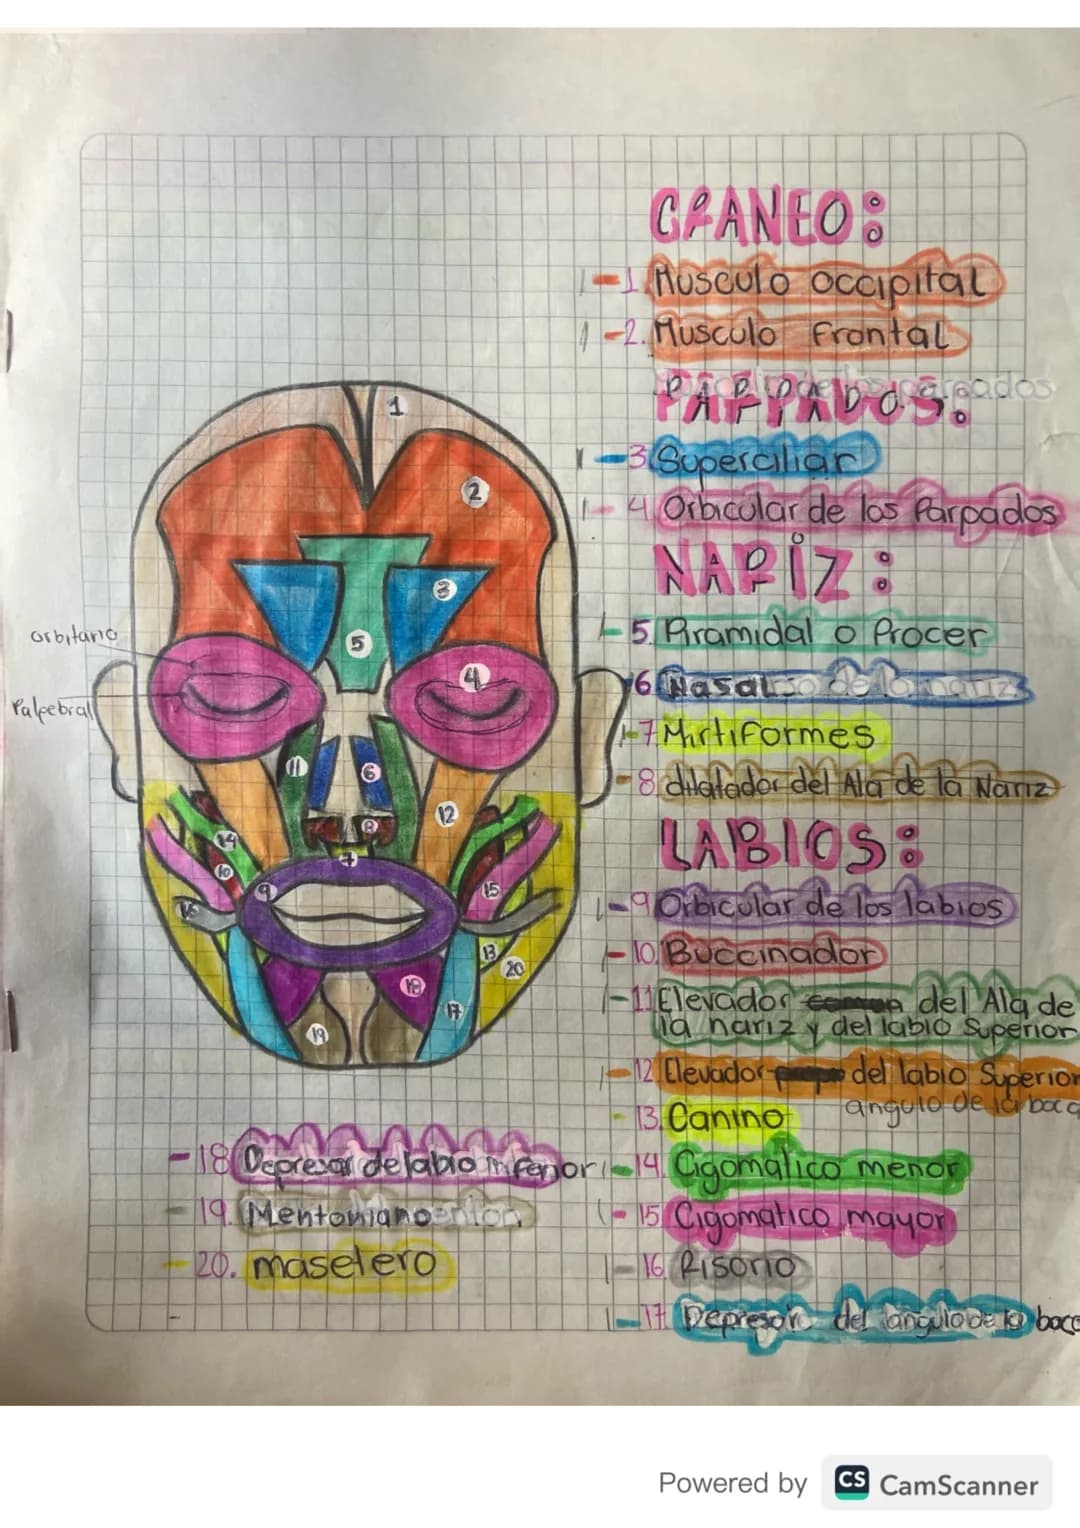 CRANEO:
1 Musculo occipital
2. Musculo Frontal
PARPADOS:
3 Superciliar
4 Orbicular de los Parpados
NARIZ:
5 Piramidal o Procer
6 Nasal
7 Mirtiformes
8. dilatador del Ala de la Nariz
LABIOS:
9 Orbicular de los labios
10. Buccinador
11 Elevador del Ala de
la nariz y del labio Superior
12 Elevador del labio Superior
angulo de la boca
13. Canino
14. Cigomatico menor
15 Cigomatico mayor
16 Risorio
17 Depresor del angulo de la boca
18 Depresor de labio inferior
19. Mentoniano
20. masetero
orbitario
Palpebral
1
2
3
5
4
11
6
12
8
7
14
10
9
15
16
13
20
18
17
19
Powered by CS CamScanner